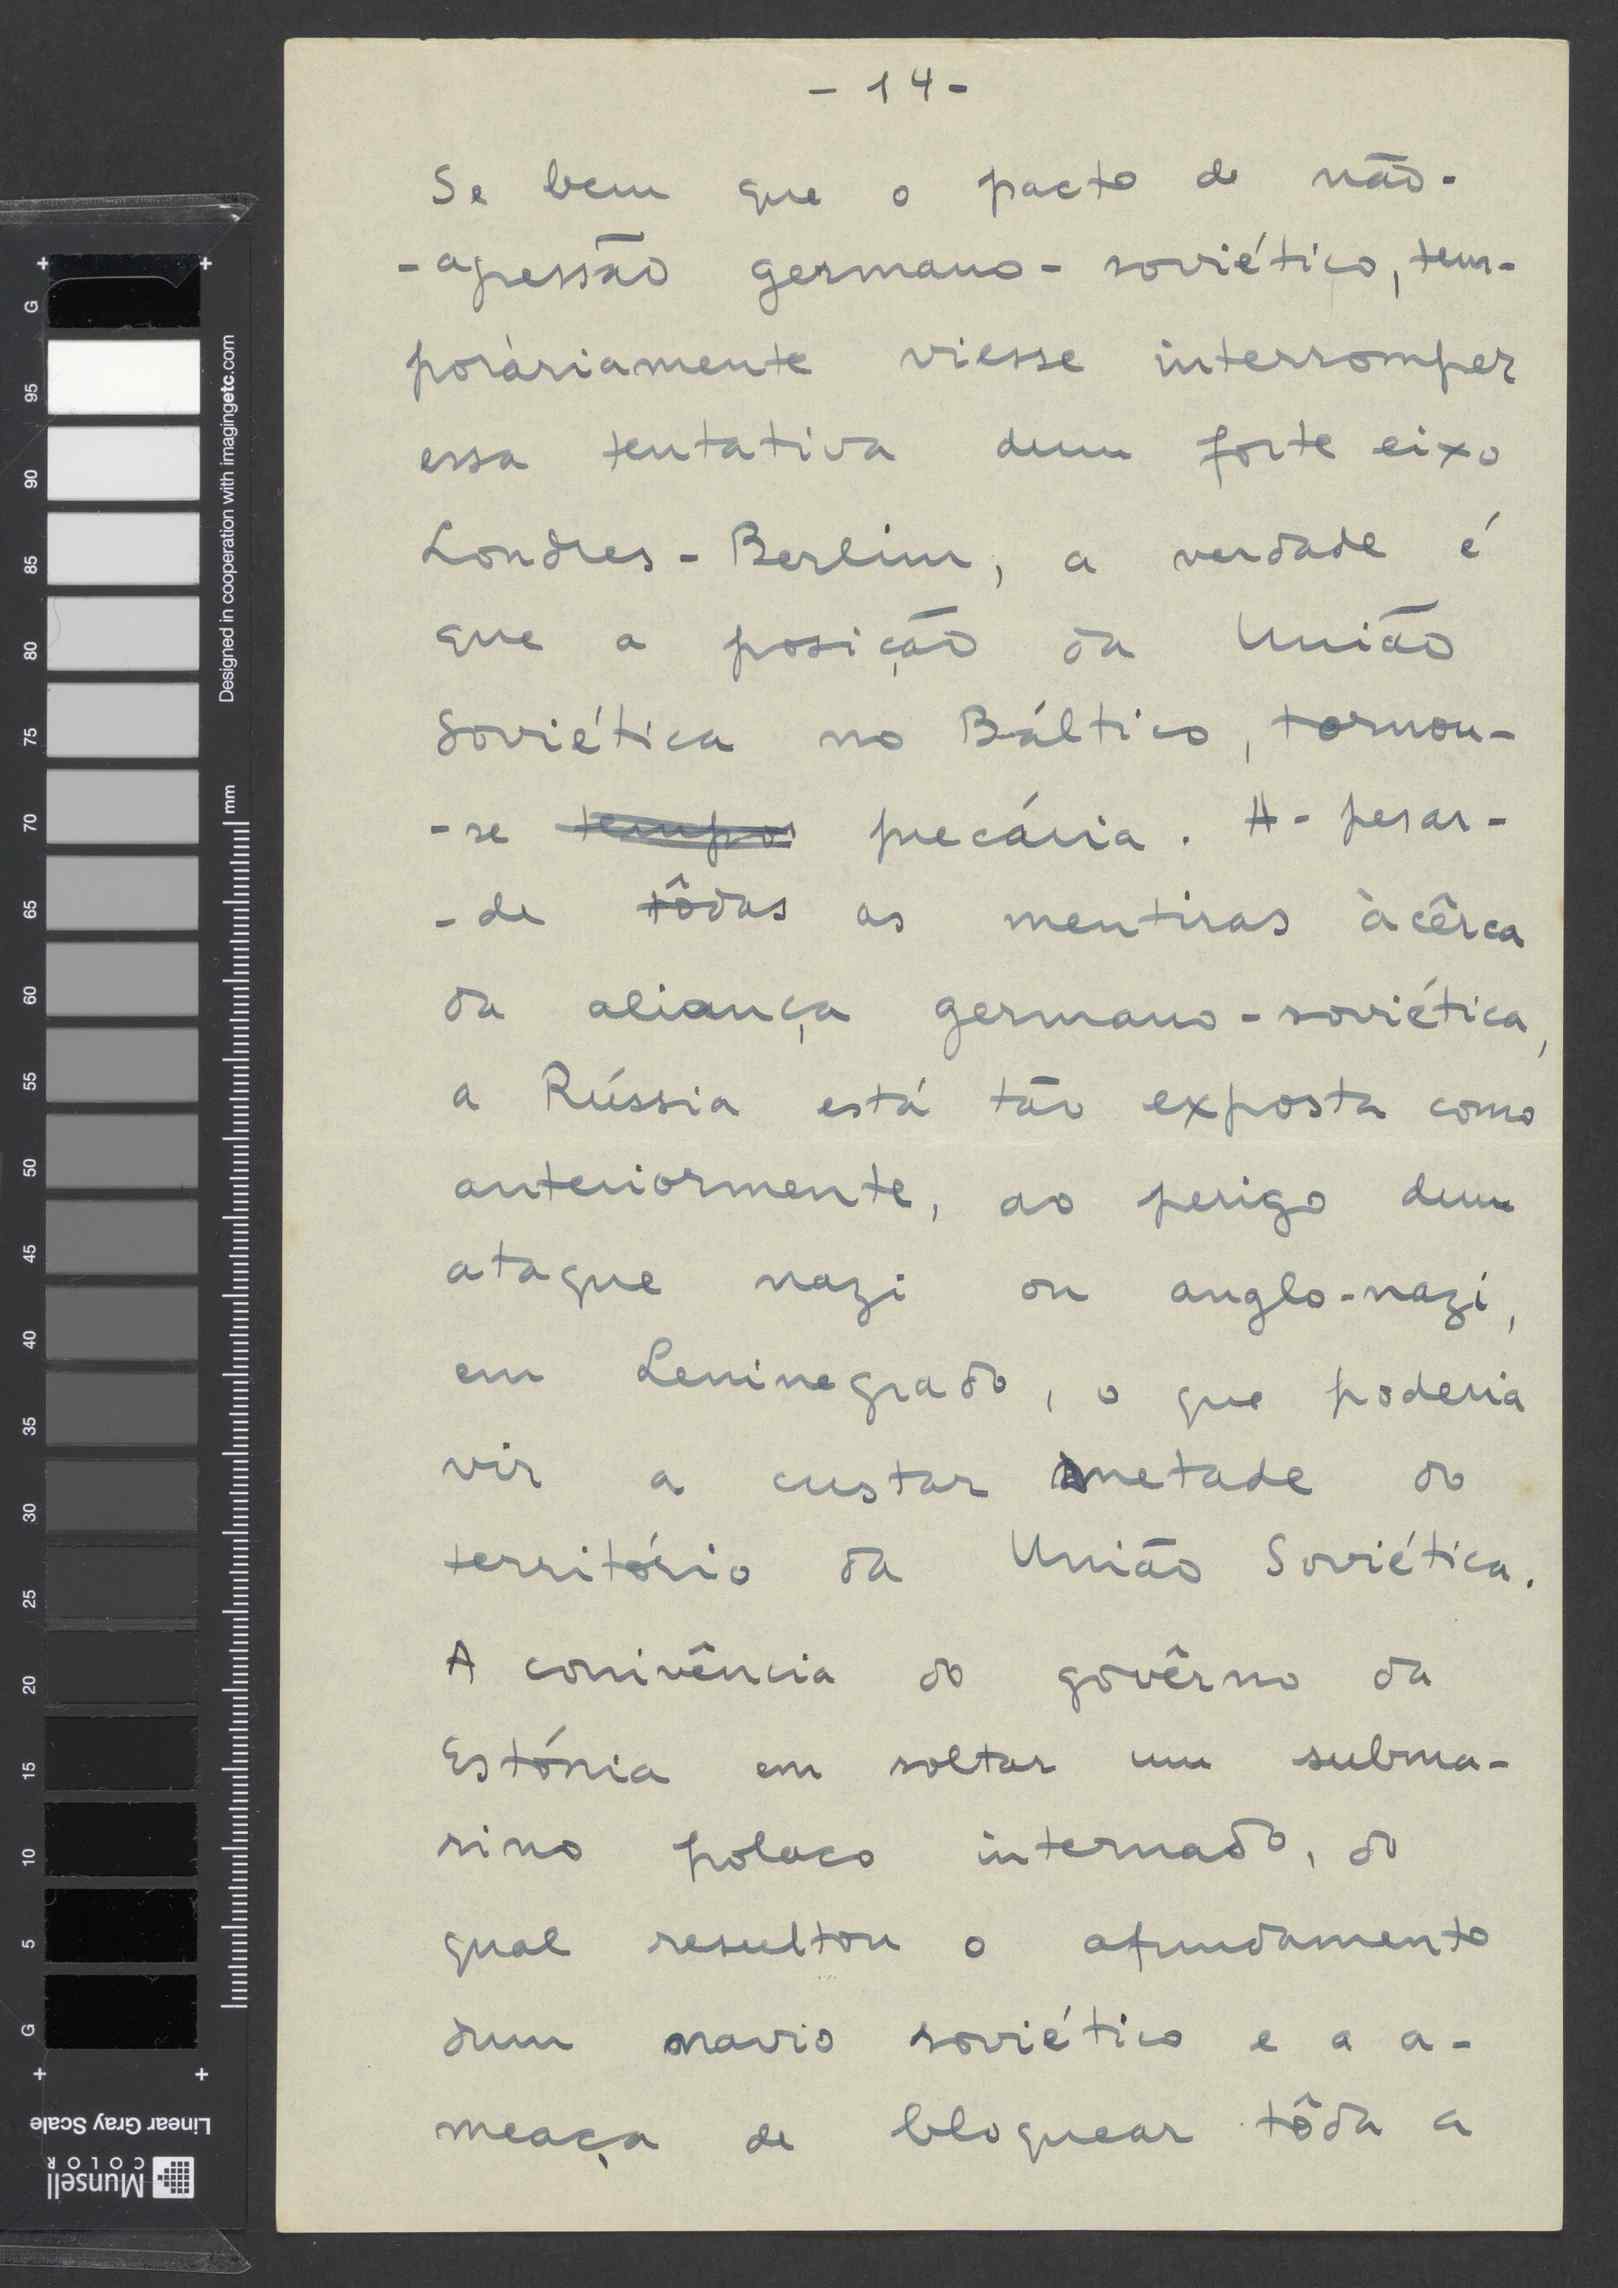 - 14 -
Se bem que o pacto de não-
-agressão germano-soviético, tem-
poràriamente viesse interromper
essa tentativa dum forte eixo
Londres-Berlim, a verdade é
que a posição da União
Soviética no Báltico, tornou-
-se tempor precária. A-pesar-
-de tôdas as mentiras àcêrca
da aliança germano-soviética,
a Rússia está tão exposta como
anteriormente, ao perigo dum
ataque nazi ou anglo-nazi,
em Leninegrado, o que poderia
vir a custar metade do
território da União Soviética.
A conivência do govêrno da
Estónia em soltar um subma-
rino polaco internado, do
qual resultou o afundamento
dum navio soviético e a a-
meaça de bloquear tôda a
G
95
90
85
80
75
70
65
60
55
50
45
40
35
30
25
20
15
10
5
G
Designed in cooperation with imagingetc.com
mm
Linear Gray Scale
Munsell
COLOR